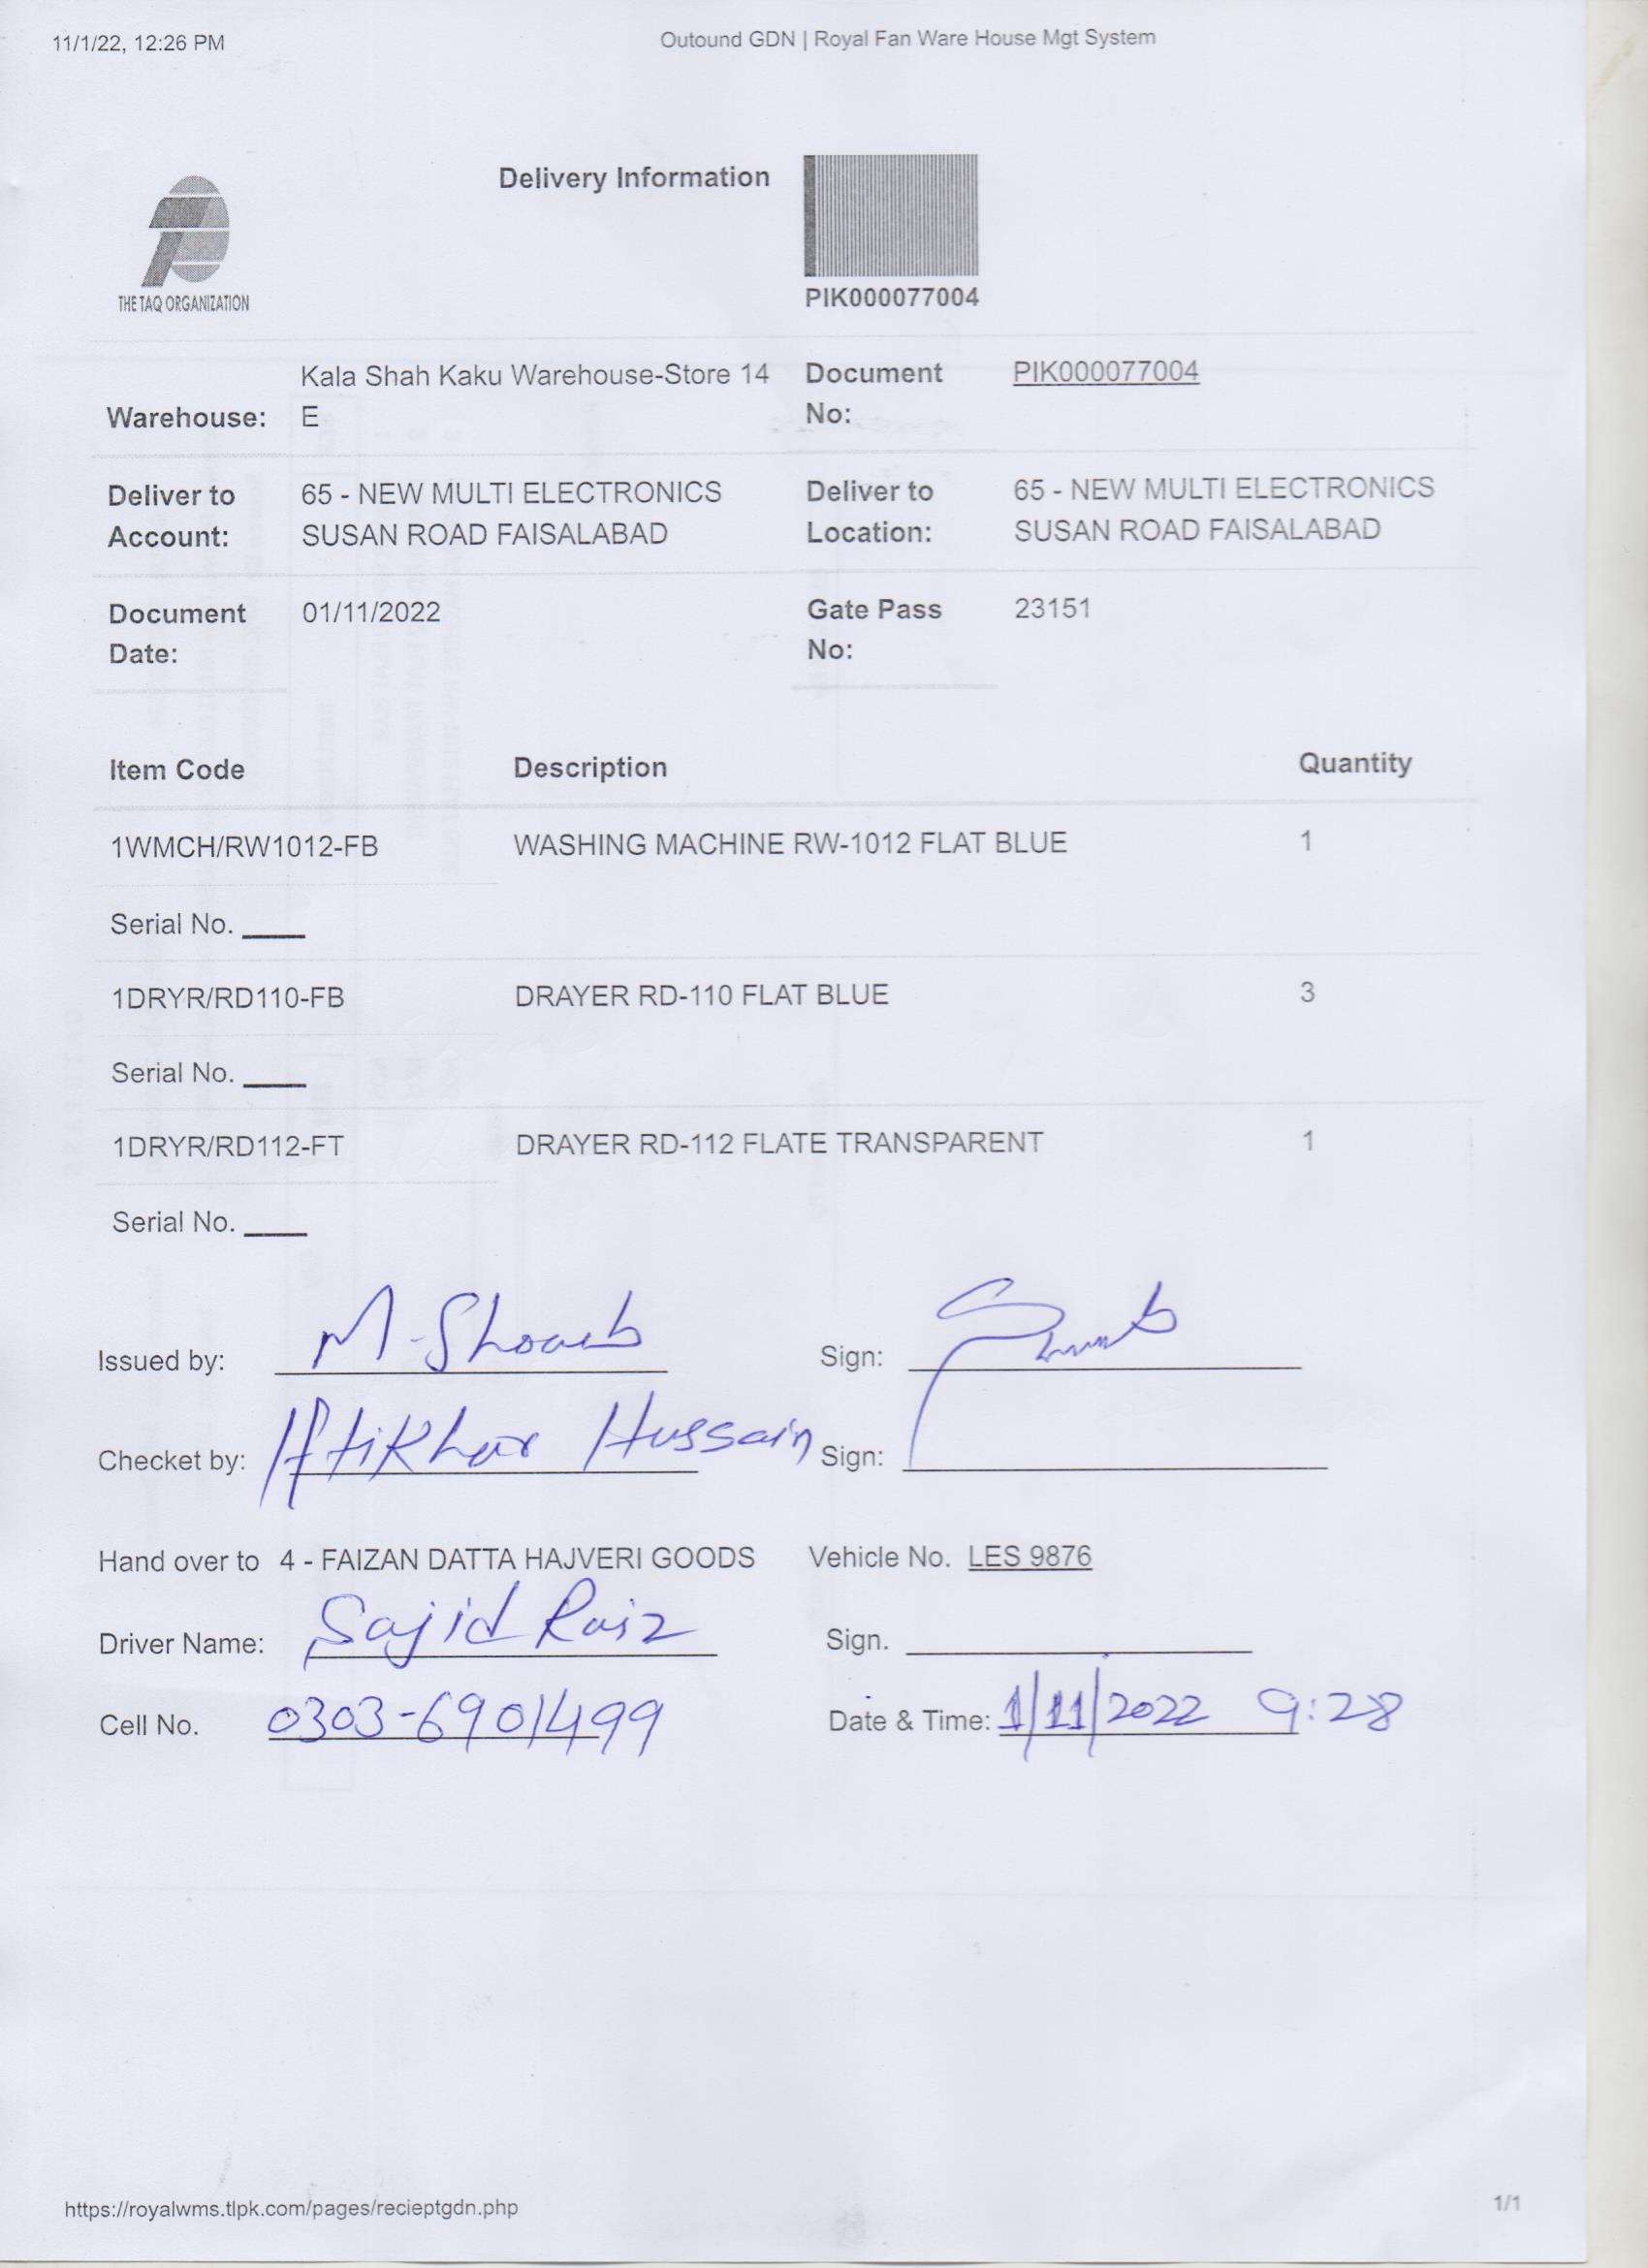 11/1/22, 12:26 PM
Outound GDN | Royal Fan Ware House Mgt System
Delivery Information
THE TAQ ORGANIZATION
PIK000077004
Kala Shah Kaku Warehouse-Store 14 Document PIK000077004
Warehouse: E No:
Deliver to 65 - NEW MULTI ELECTRONICS Deliver to 65 - NEW MULTI ELECTRONICS
Account: SUSAN ROAD FAISALABAD Location: SUSAN ROAD FAISALABAD
Document 01/11/2022 Gate Pass 23151
Date: No:
Item Code Description Quantity
1WMCH/RW1012-FB WASHING MACHINE RW-1012 FLAT BLUE 1
Serial No. ____
1DRYR/RD110-FB DRAYER RD-110 FLAT BLUE 3
Serial No. ____
1DRYR/RD112-FT DRAYER RD-112 FLATE TRANSPARENT 1
Serial No. ____
Issued by: M-Shoaib Sign:
Checket by: Iftikhar Hussain Sign:
Hand over to 4 - FAIZAN DATTA HAJVERI GOODS Vehicle No. LES 9876
Driver Name: Sajid Raiz Sign.
Cell No. 0303-6901499 Date & Time: 1/11/2022 9:28
https://royalwms.tlpk.com/pages/recieptgdn.php 1/1